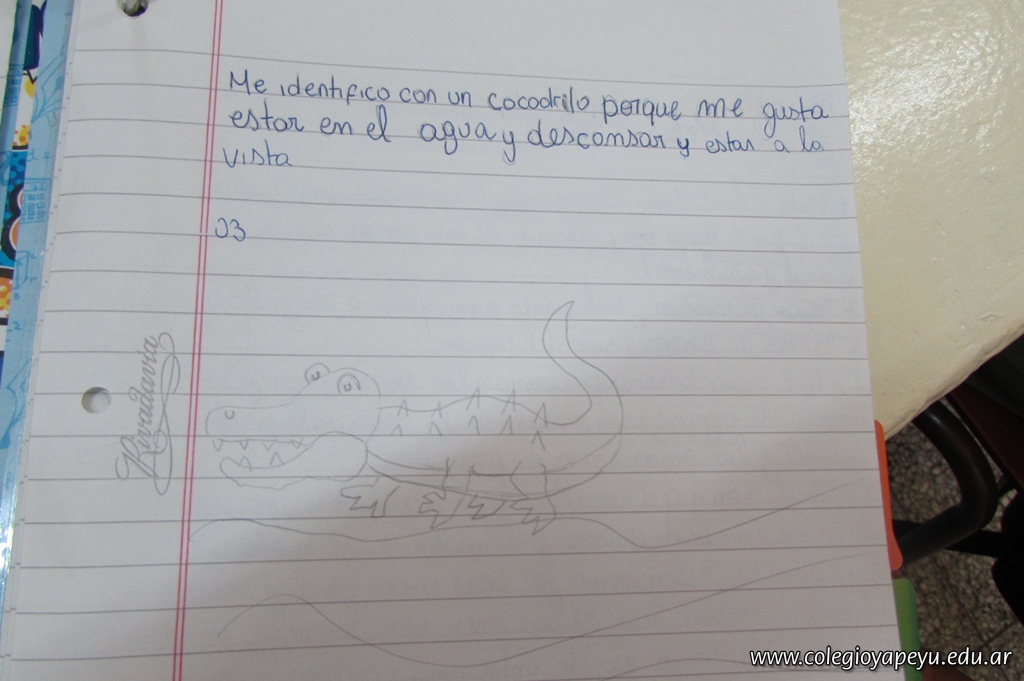 Me identifico con un cocodrilo porque me gusta
estar en el agua y descansar y estar a la
vista
03
Rivadavia
www.colegioyapeyu.edu.ar